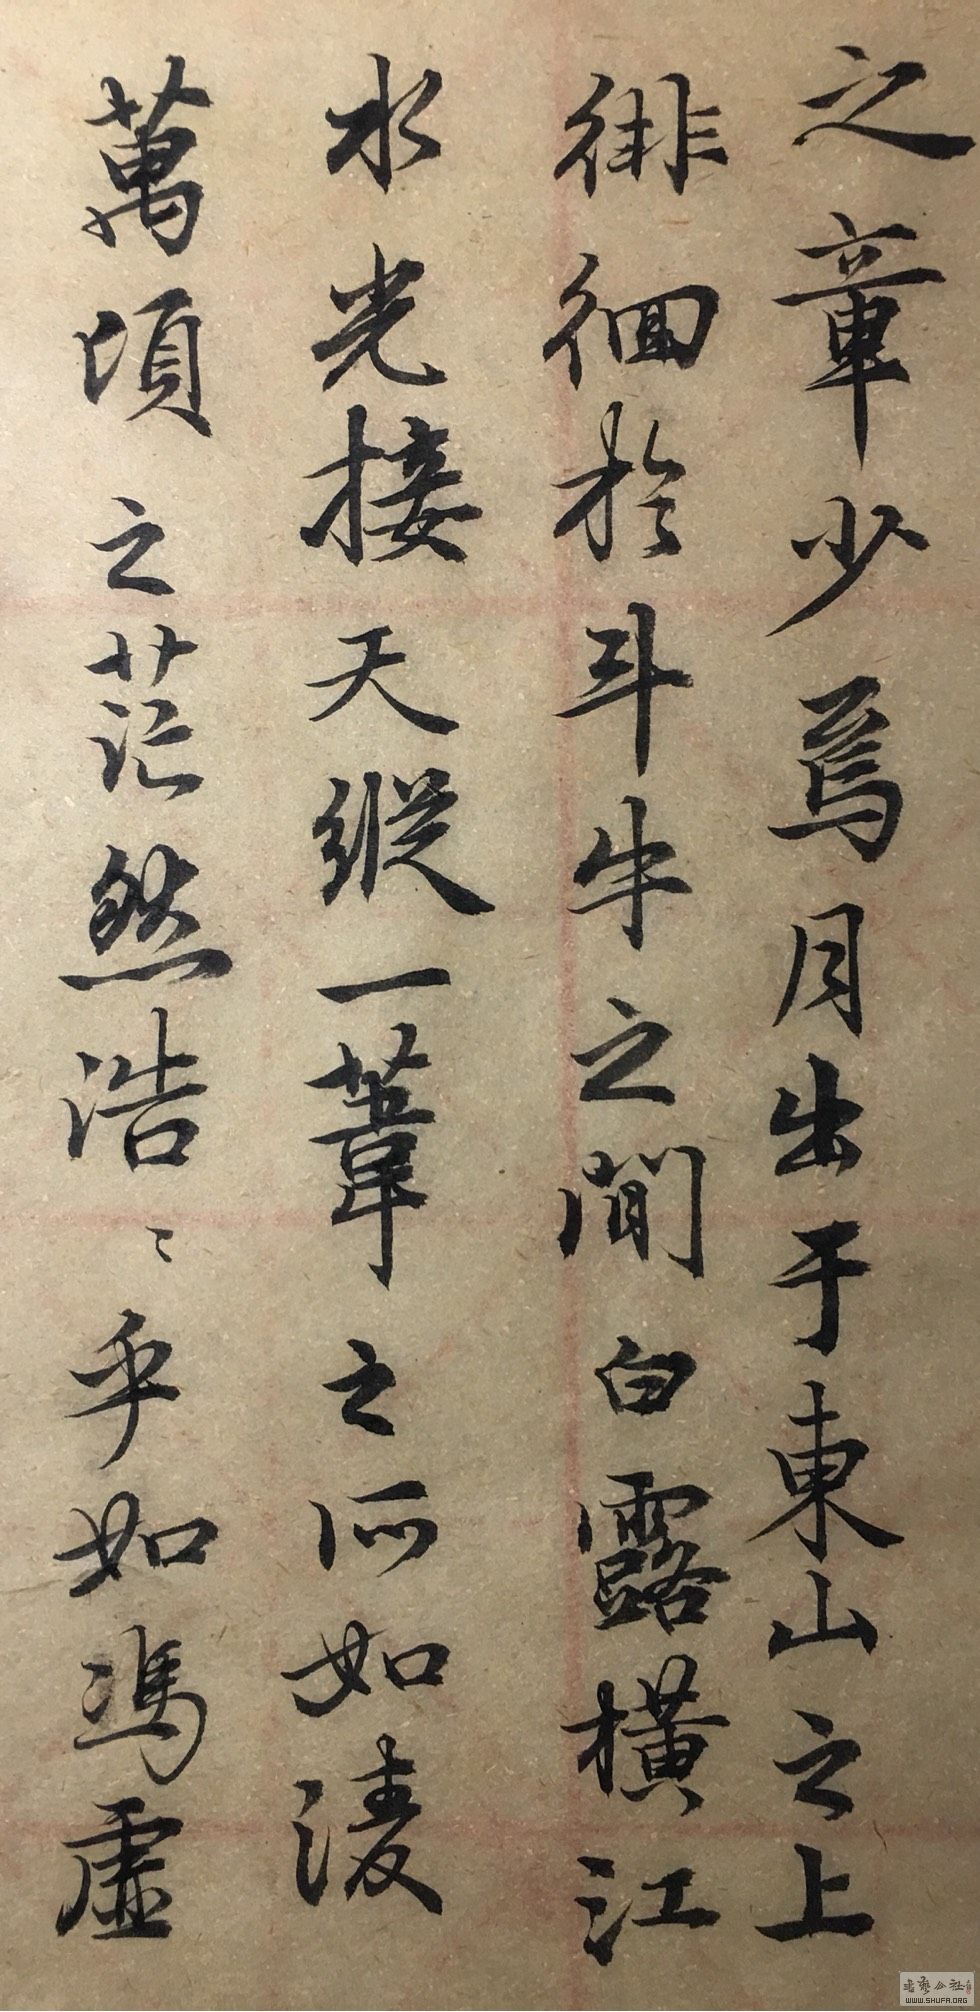 之章少焉月出于東山之上
徘徊於斗牛之間白露橫江
水光接天縱一葦之所如淩
萬頃之茫然浩〻乎如馮虛
WWW.SHUFA.ORG